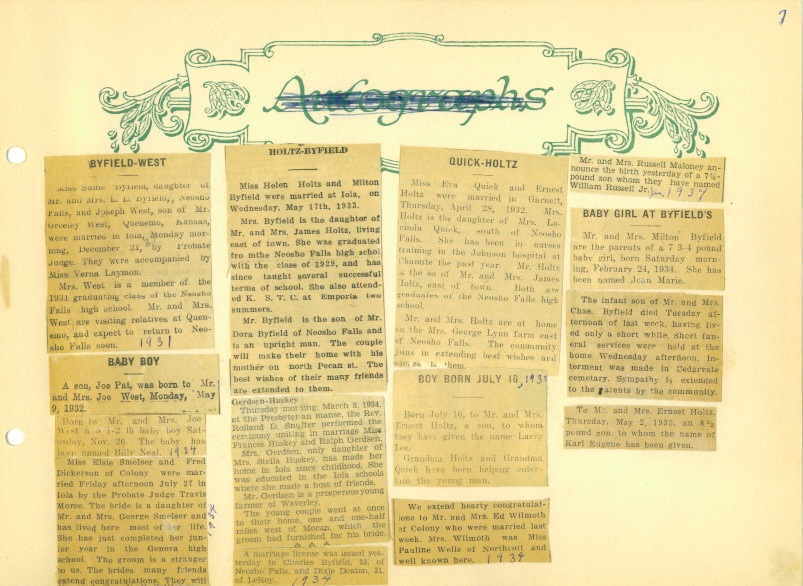 7
Autographs
BYFIELD-WEST
Miss Sadie Byfield, daughter of
Mr. and Mrs. L. D. Byfield, Neosho
Falls, and Joseph West, son of Mr.
Greeley West, Quenemo, Kansas,
were married in Iola, Monday mor-
ning, December 21, by Probate
Judge. They were accompanied by
Miss Verna Laymon.
Mrs. West is a member of the
1931 graduating class of the Neosho
Falls high school. Mr. and Mrs.
West are visiting relatives at Quen-
emo, and expect to return to Neo-
sho Falls soon. 1931
BABY BOY
A son, Joe Pat, was born to Mr.
and Mrs. Joe West, Monday, May
9, 1932.
Born to Mr. and Mrs. Joe
West a 1-2 lb baby boy Sat-
urday, Nov. 26. The baby has
been named Billy Neal. 1934
Miss Elsie Smelser and Fred
Dickerson of Colony were mar-
ried Friday afternoon July 27 in
Iola by the Probate Judge Travis
Morse. The bride is a daughter of
Mr. and Mrs. George Smelser and
has lived here most of her life.
She has just completed her jun-
ior year in the Geneva high
school. The groom is a stranger
to us. The brides many friends
extend congratulations. They will
1934
HOLTZ-BYFIELD
Miss Helen Holtz and Milton
Byfield were married at Iola, on
Wednesday, May 17th, 1933.
Mrs. Byfield is the daughter of
Mr. and Mrs. James Holtz, living
east of town. She was graduated
fro mthe Neosho Falls high schol
with the class of 1929, and has
since taught several successful
terms of school. She also attend-
ed K. S. T. C. at Emporia two
summers.
Mr. Byfield is the son of Mr.
Dora Byfield of Neosho Falls and
is an upright man. The couple
will make their home with his
mother on north Pecan st. The
best wishes of their many friends
are extended to them.
Gerdsen-Huskey
Thursday morning, March 8, 1934,
at the Presbyterian manse, the Rev.
Rolland D. Snuffer performed the
ceremony uniting in marriage Miss
Frances Huskey and Ralph Gerdsen.
Mrs. Gerdsen, only daughter of
Mrs. Stella Huskey, has made her
home in Iola since childhood. She
was educated in the Iola schools
where she made a host of friends.
Mr. Gerdsen is a prosperous young
farmer of Waverley.
The young couple went at once
to their home, one and one-half
miles west of Moran, which the
groom had furnished for his bride.
A marriage license was issued yes-
terday to Charles Byfield, 23, of
Neosho Falls, and Dixie Deaton, 21,
of LeRoy. 1934
QUICK-HOLTZ
Miss Eva Quick and Ernest
Holtz were married in Garnett,
Thursday, April 28, 1932. Mrs.
Holtz is the daughter of Mrs. Lu-
cinda Quick, south of Neosho
Falls. She has been in nurses
training in the Johnson hospital at
Chanute the past year. Mr. Holtz
is the so of Mr. and Mrs. James
Holtz, east of town. Both are
graduates of the Neosho Falls high
school.
Mr. and Mrs. Holtz are at home
on the Mrs. George Lynn farm east
of Neosho Falls. The community
joins in extending best wishes and
success to them.
BOY BORN JULY 16, 1933
Born July 16, to Mr. and Mrs.
Ernest Holtz, a son, to whom
they have given the name Larry
Lee.
Grandma Holtz and Grandma
Quick have been helping enter-
tain the young man.
We extend hearty congratula-
tions to Mr. and Mrs. Ed Wilmoth
of Colony who were married last
week. Mrs. Wilmoth was Miss
Pauline Wells of Northcott and
well known here. 1934
Mr. and Mrs. Russell Maloney an-
nounce the birth yesterday of a 7¾-
pound son whom they have named
William Russell Jr. 1934
BABY GIRL AT BYFIELD'S
Mr. and Mrs. Milton Byfield
are the parents of a 7 3-4 pound
baby girl, born Saturday morn-
ing, February 24, 1934. She has
been named Jean Marie.
The infant son of Mr. and Mrs.
Chas. Byfield died Tuesday af-
ternoon of last week, having liv-
ed only a short while. Short fun-
eral services were held at the
home Wednesday afternoon. In-
terment was made in Cedarvale
cemetary. Sympathy is extended
to the parents by the community.
To Mr. and Mrs. Ernest Holtz,
Thursday, May 2, 1935, an 8½
pound son, to whom the name of
Karl Eugene has been given.